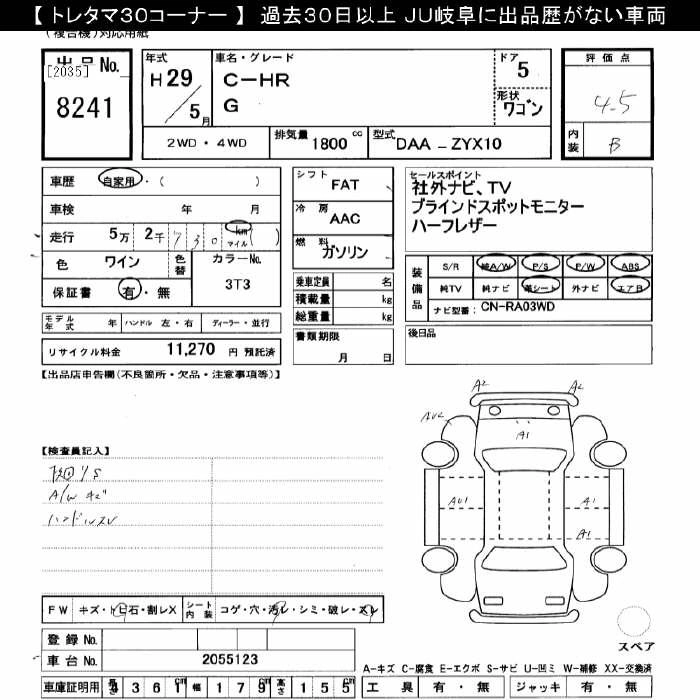 【 トレタマ30コーナー 】 過去30日以上 JU岐阜に出品歴がない車両
(複合機)対応用紙
出品No.
[2035]
8241
年式
H29
5月
車名・グレード
C-HR
G
ドア
5
形状
ワゴン
評価点
4.5
内装
B
2WD・4WD
排気量 1800 cc
型式 DAA-ZYX10
車歴 自家用・( )
車検 年 月
走行 5万 2千 730 km マイル ( )
色 ワイン
色替
カラーNo.
3T3
保証書 有・無
シフト
FAT
冷房
AAC
燃料
ガソリン
乗車定員 名
積載量 kg
総重量 kg
セールスポイント
社外ナビ、TV
ブラインドスポットモニター
ハーフレザー
装備品
S/R 純A/W P/S P/W ABS
純TV 純ナビ 革シート 外ナビ エアB
ナビ型番: CN-RA03WD
モデル年式 年 ハンドル 左・右 ディーラー・並行
リサイクル料金 11,270 円 預託済
書類期限
月 日
後日品
【出品店申告欄(不良箇所・欠品・注意事項等)】
【検査員記入】
A/W キズ
ハンドルスレ
A2 A2
A1
A1
A1
FW キズ・トビ石・割レX
シート内装 コゲ・穴・汚レ・シミ・破レ・スレ
登録 No.
車台 No. 2055123
車庫証明用 長さ 436 1cm 幅 179cm 高さ 155cm
スペア
A-キズ C-腐食 E-エクボ S-サビ U-凹ミ W-補修 XX-交換済
工具 有・無 ジャッキ 有・無